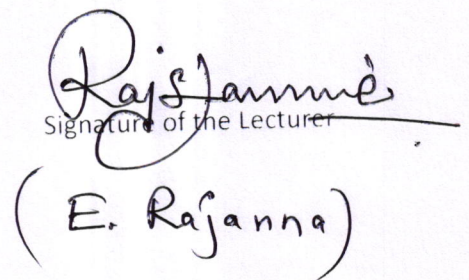 Signature of the Lecturer
(E. Rajanna)